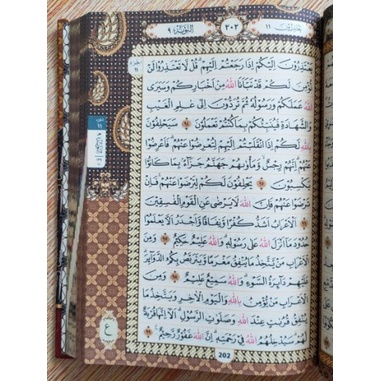 التوبة ٩ ٢٠٢ ١١
يَعْتَذِرُونَ إِلَيْكُمْ إِذَا رَجَعْتُمْ إِلَيْهِمْ قُل لَّا تَعْتَذِرُوا۟ لَن
نُّؤْمِنَ لَكُمْ قَدْ نَبَّأَنَا ٱللَّهُ مِنْ أَخْبَارِكُمْ وَسَيَرَى
ٱللَّهُ عَمَلَكُمْ وَرَسُولُهُۥ ثُمَّ تُرَدُّونَ إِلَىٰ عَٰلِمِ ٱلْغَيْبِ
وَٱلشَّهَٰدَةِ فَيُنَبِّئُكُم بِمَا كُنتُمْ تَعْمَلُونَ ٩٤ سَيَحْلِفُونَ
بِٱللَّهِ لَكُمْ إِذَا ٱنقَلَبْتُمْ إِلَيْهِمْ لِتُعْرِضُوا۟ عَنْهُمْ فَأَعْرِضُوا۟
عَنْهُمْ إِنَّهُمْ رِجْسٌ وَمَأْوَىٰهُمْ جَهَنَّمُ جَزَآءًۢ بِمَا كَانُوا۟
يَكْسِبُونَ ٩٥ يَحْلِفُونَ لَكُمْ لِتَرْضَوْا۟ عَنْهُمْ فَإِن
تَرْضَوْا۟ عَنْهُمْ فَإِنَّ ٱللَّهَ لَا يَرْضَىٰ عَنِ ٱلْقَوْمِ ٱلْفَٰسِقِينَ
٩٦ ٱلْأَعْرَابُ أَشَدُّ كُفْرًا وَنِفَاقًا وَأَجْدَرُ أَلَّا يَعْلَمُوا۟
حُدُودَ مَآ أَنزَلَ ٱللَّهُ عَلَىٰ رَسُولِهِۦ وَٱللَّهُ عَلِيمٌ حَكِيمٌ ٩٧ وَمِنَ
ٱلْأَعْرَابِ مَن يَتَّخِذُ مَا يُنفِقُ مَغْرَمًا وَيَتَرَبَّصُ بِكُمُ ٱلدَّوَآئِرَ
عَلَيْهِمْ دَآئِرَةُ ٱلسَّوْءِ وَٱللَّهُ سَمِيعٌ عَلِيمٌ ٩٨ وَمِنَ
ٱلْأَعْرَابِ مَن يُؤْمِنُ بِٱللَّهِ وَٱلْيَوْمِ ٱلْءَاخِرِ وَيَتَّخِذُ مَا
يُنفِقُ قُرُبَٰتٍ عِندَ ٱللَّهِ وَصَلَوَٰتِ ٱلرَّسُولِ أَلَآ إِنَّهَا قُرْبَةٌ
لَّهُمْ سَيُدْخِلُهُمُ ٱللَّهُ فِى رَحْمَتِهِۦٓ إِنَّ ٱللَّهَ غَفُورٌ رَّحِيمٌ ٩٩
ع
202